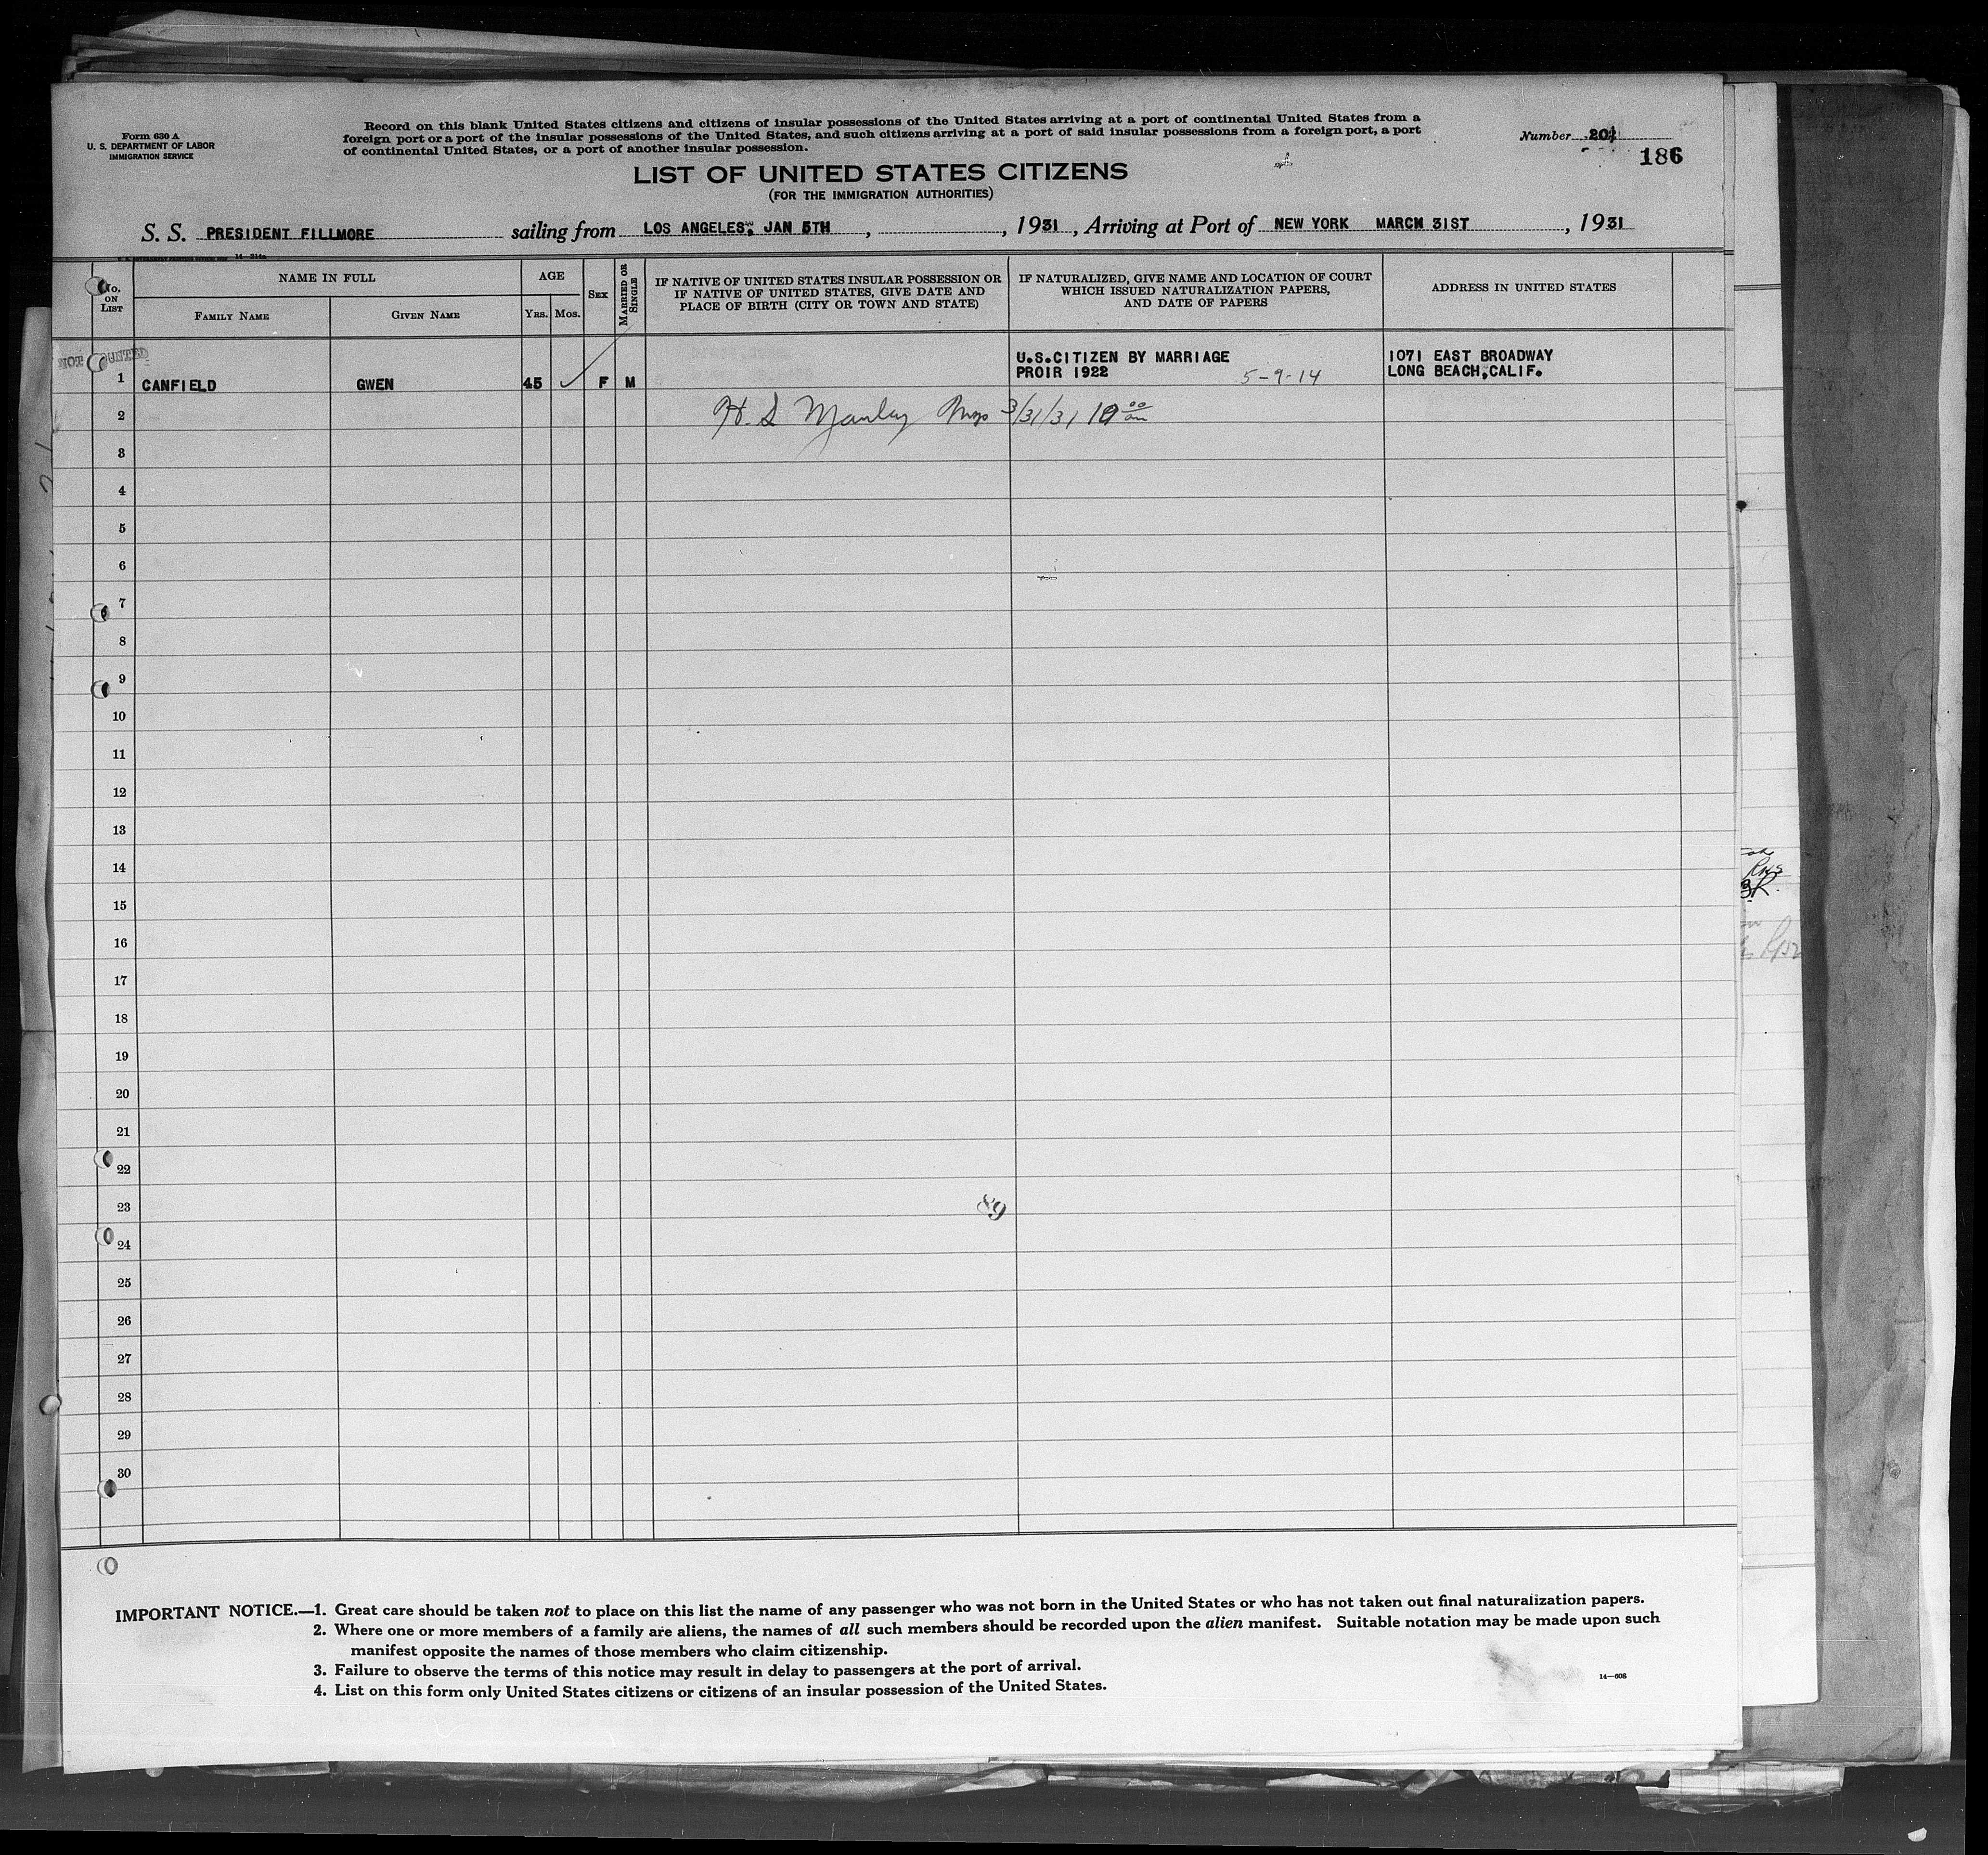 Form 630 A
U. S. DEPARTMENT OF LABOR
IMMIGRATION SERVICE
Record on this blank United States citizens and citizens of insular possessions of the United States arriving at a port of continental United States from a
foreign port or a port of the insular possessions of the United States, and such citizens arriving at a port of said insular possessions from a foreign port, a port
of continental United States, or a port of another insular possession.
Number
186
LIST OF UNITED STATES CITIZENS
(FOR THE IMMIGRATION AUTHORITIES)
S. S. PRESIDENT FILLMORE sailing from LOS ANGELES, JAN 5TH , , 1931 , Arriving at Port of NEW YORK MARCH 31ST , 1931
No. ON LIST
NAME IN FULL
FAMILY NAME
GIVEN NAME
AGE
YRS. MOS.
SEX
MARRIED OR SINGLE
IF NATIVE OF UNITED STATES INSULAR POSSESSION OR
IF NATIVE OF UNITED STATES, GIVE DATE AND
PLACE OF BIRTH (CITY OR TOWN AND STATE)
IF NATURALIZED, GIVE NAME AND LOCATION OF COURT
WHICH ISSUED NATURALIZATION PAPERS,
AND DATE OF PAPERS
ADDRESS IN UNITED STATES
NOT
U.S.CITIZEN BY MARRIAGE 1071 EAST BROADWAY
PROIR 1922 5-9-14 LONG BEACH,CALIF.
1 CANFIELD GWEN 45 F M
2 H. S Manley 3/31/31 10 00 am
3
4
5
6
7
8
9
10
11
12
13
14
15
16
17
18
19
20
21
22
23
89
24
25
26
27
28
29
30
IMPORTANT NOTICE.—1. Great care should be taken not to place on this list the name of any passenger who was not born in the United States or who has not taken out final naturalization papers.
2. Where one or more members of a family are aliens, the names of all such members should be recorded upon the alien manifest. Suitable notation may be made upon such
manifest opposite the names of those members who claim citizenship.
3. Failure to observe the terms of this notice may result in delay to passengers at the port of arrival.
4. List on this form only United States citizens or citizens of an insular possession of the United States.
14—608